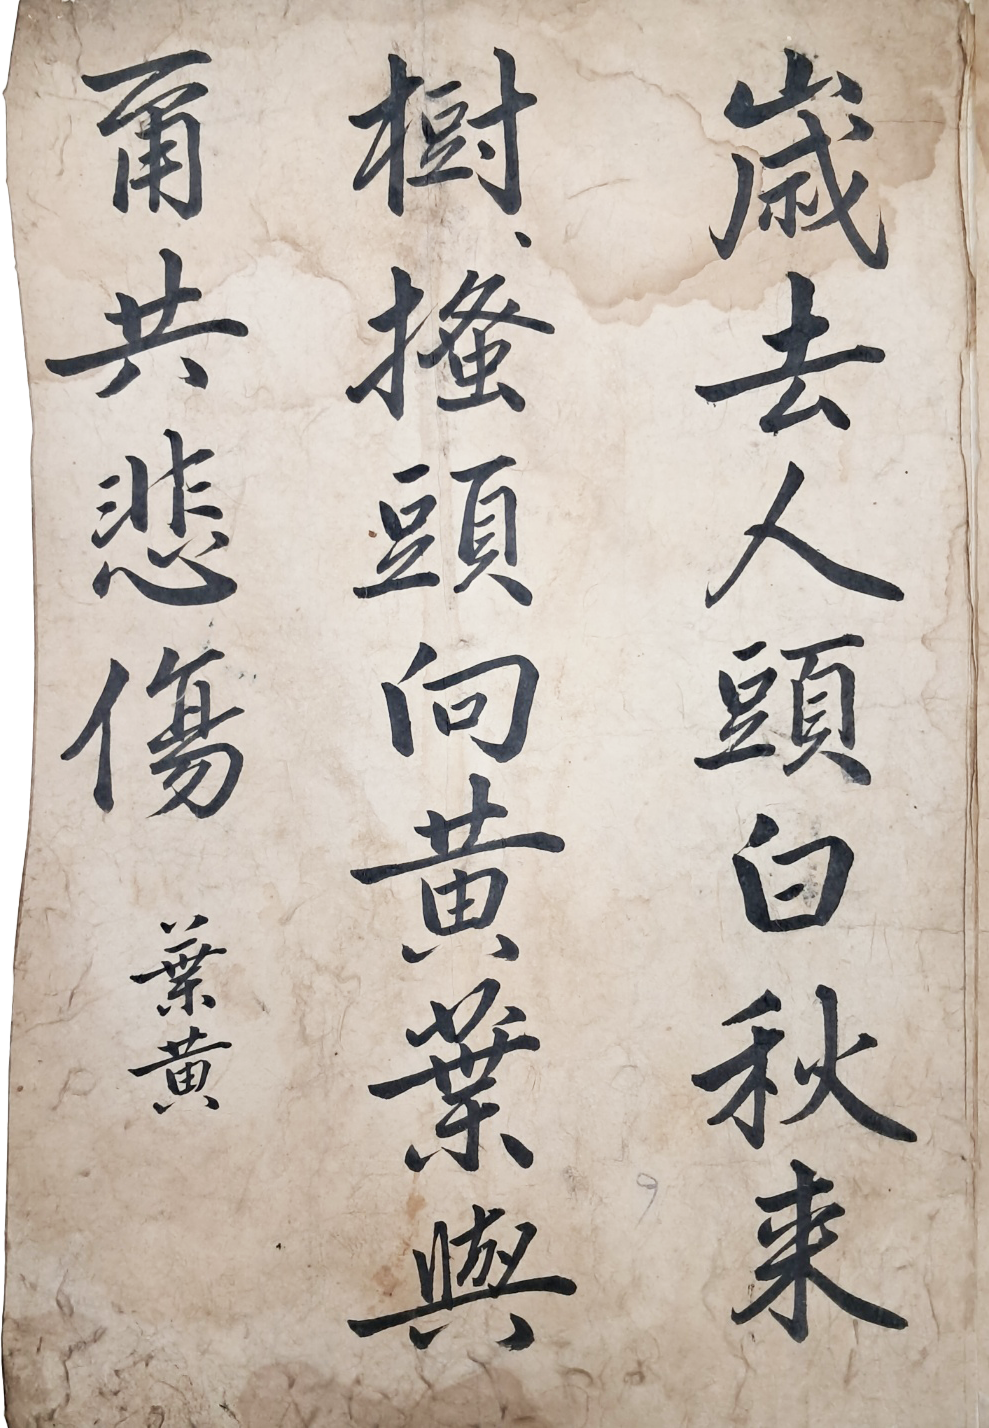 歲去人頭白秋来
樹、搔頭向黄葉與
爾共悲傷 葉黄